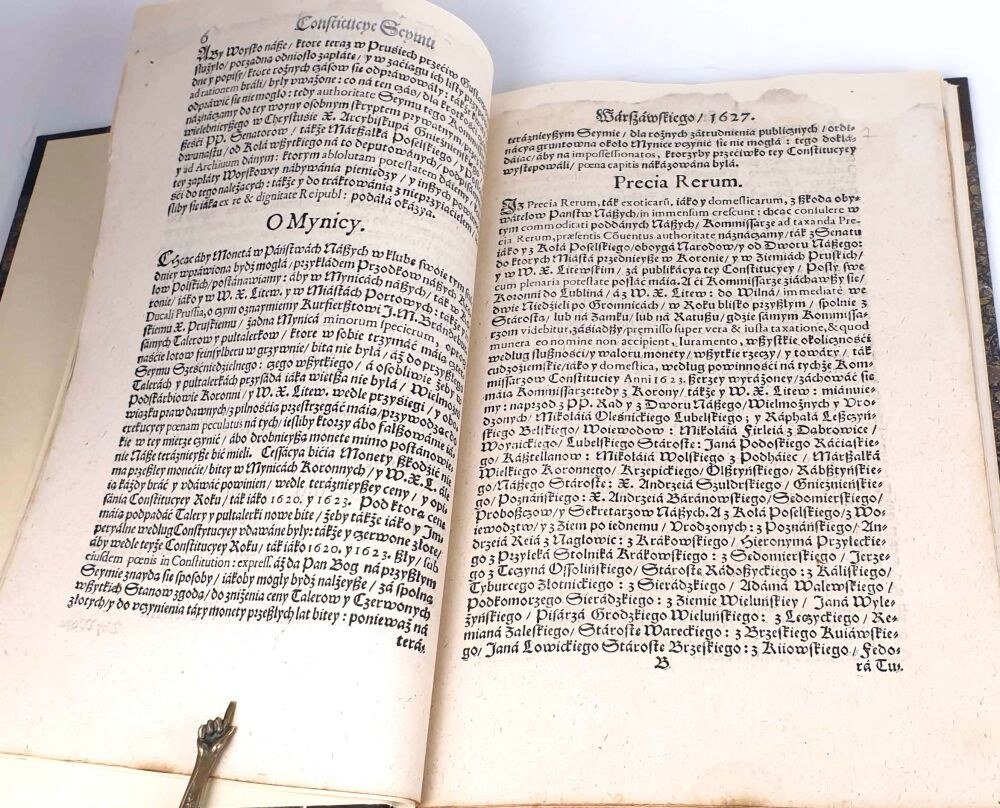 6 Constitucye Seymu
ABy Woysko náße/ ktore teraz w Prusiech przećiw Gustaw
służyło/ porządna odniosło zapłatę/ y w záćiągu ich listy prz
dne y popisy/ ktore rożnych czásow sie odpráwowáły: ták
ad rationem bráli/ były uważone: co ná ten czás/ dla krot
odpráwić sie nie mogło: tedy authoritate Seymu tego
náznáczamy do tey woyny osobnym skryptem prywatnym
wielebnieyßego w Chrystusie X. Arcybiskupá Gnieznienskie
ßeśći PP. Senatorow/ tákże Márßałká Poselskiego/ y
dwunastu/ od Kołá wßytkiego ná to deputowánych/
y ad Archivum dánym: ktorym absolutam potestatem dáiemy/
tey zapłáty Woyskowey nábywánia pieniędzy/ y inßych potrzeb
śći do tego należących: tákże y do tráktowánia z nieprzyiaćielem/
śliby sie iáka ex re & dignitate Reipubl: podáłá okázya.
O Mynicy.
CHcąc áby Monetá w Páństwách Nászych w klubę swoię tym
dniey wpráwiona bydź mogłá/ przykłádem Przodkow náßych
low Polskich/ postánawiamy: áby w Mynicách náßych/ ták w
ronie/ iáko y w W. X. Litew. y w Miástách Portowych/ tákże
Ducali Prussia, o czym oznaymimy Kurfierßtowi J. M. Brándeb
skiemu X. Pruskiemu/ żadna Mynicá minorum specierum, oprocz
sámych Talerow y pułtálerkow/ ktore w sobie trzymáć máią
naśćie łotow feinsylberu w grzywnie/ bita nie byłá/ áż do przyß
Seymu Sześćniedźielnego: czego wßytkiego/ á osobliwie żeby w
Talerách y pułtálerkách przysádá iáka wietßa nie byłá/ Wielmoż
Podskárbiowie Koronni/ y W. X. Litew. wedle przyśięgi/ y obo
wiązku praw dawnych/ z pilnośćią przestrzegáć máią/ przywodząc do
exekucyey pœnam peculatus ná tych/ ieśliby ktorzy ábo fałßowáne tá-
kie w tey mierze czynić/ ábo drobnieyßą monetę mimo postánowie-
nie Náße teráznieyße bić mieli. Cessácya bićia Monety ßkodźić nie
ma przeßłey monećie/ bitey w Mynicách Koronnych/ y W.X.L. ále
ią káżdy bráć y wdawáć powinien/ wedle teráznieyßey ceny/ y opi-
sánia Constitucyey Roku/ ták iáko 1620. y 1623. Pod ktorą cenę
máią podpádáć Talery y pułtálerki nowe bite/ żeby tákże iáko y Jm-
peryałne według Constytucyey wdawáne były: tákże y czerwone złote/
áby wedle teyże Constitucyey Roku/ ták iáko 1620. y 1623. ßły/ sub
eiusdem pœnis in Constitution: express. áż da Pan Bog ná przyßłym
Seymie znaydą sie sposoby/ iákoby mogły bydź náleźyße/ zá spolną
wßytkich Stanow zgodą/ do zniżenia ceny Talerow y Czerwonych
złotych/ y do uczynienia táry monety przeßłych lat bitey: ponieważ ná
teráz-
Wárszáwskiego/ 1627. 7
teráznieyßym Seymie/ dla rożnych zátrudnienia publicznych/ ordi-
nácya gruntowna około Mynice uczynić sie nie mogłá: tego dokłá-
dáiąc/ áby ná impossessionatos, ktorzyby przećiwko tey Constitucyey
występowáli/ pœna capitis nákázowána byłá.
Precia Rerum.
IŻ Precia Rerum, ták exoticarũ, iáko y domesticarum, z ßkodą oby-
wátelow Państw Náßych/ in immensum crescunt: chcąc consulere w
tym commoditati poddánych Náßych/ Kommissarze ad taxanda Pre-
cia Rerum, præsentis Cõuentus authoritate náznáczamy/ ták z Senatu
iáko y z Kołá Poselskiego/ oboygá Narodow/ y od Dworu Nášego:
do ktorych Miástá przednieyße w Koronie/ y w Ziemiách Pruskich/
y w W. X. Litewskim/ zá publikácyą tey Constitucyey/ Posły swe
cum plenaria potestate posłáć máią. A ći Kommissarze ziácháwßy sie/
Koronni do Lubliná/ á z W. X. Litew: do Wilná/ immediatè we
dwie Niedźieli po Gromnicách/ w Roku blisko przyßłym/ spolnie z
Stárostą/ lub ná Zamku/ lub ná Ratußu/ gdźie sámym Kommissa-
rzom videbitur, zásiádßy/ præmisso super vera & iusta taxatione, & quod
munera eo nomine non accipient, iuramento, wßystkie okolicznośći
według słußnośći/ y waloru monety/ wßytkie rzeczy/ y towáry/ ták
cudzoźiemskie/ iáko y domestica, według powinnośći ná tychże Kom-
missarzow Constitucyey Anni 1623. ßerzey wyráżoney/ záchowáć sie
máią Kommissarze tedy z Korony/ tákże y W. X. Litew: miánuie-
my: naprzod z PP. Rad y z Dworu Náßego/ Wielmożnych y Uro-
dzonych/ Mikołáiá Oleśnickiego Lubelskiego: y Ráphałá Leßczyń-
skiego Bełskiego/ Woiewodow: Mikołáiá Firleiá z Dąbrowice/
Woynickiego/ Lubelskiego Stárostę: Janá Podoskiego Ráćiąskie-
go/ Káßtellanow: Mikołáiá Wolskiego z Podháiec/ Márßałká
Wielkiego Koronnego/ Krzepickiego/ Olßtyńskiego/ Rábßtyńskie-
go/ Náßego Stárostę: X. Andrzeiá Szułdrskiego/ Gnieźnieńskie-
go/ Poznáńskiego: X. Andrzeiá Báránowskiego/ Sędomierskiego/
Proboßczow/ y Sekretarzow Náßych. A z Kołá Poselskiego/ z Wo-
iewodztw/ y z Ziem po iednemu/ Urodzonych: z Poznáńskiego/ An-
drzeiá Reiá z Nagłowic: z Krákowskiego/ Hieronymá Przyłeckie-
go z Przyłęká Stolniká Krákowskiego: z Sędomierskiego/ Jerze-
go z Tęczyná Ossolińskiego/ Stárostę Rádoßyckiego: z Káliskiego/
Tyburcego Złotnickiego: z Sierádzkiego/ Adámá Wálewskiego/
Podkomorzego Sierádzkiego: z Ziemie Wieluńskiey/ Janá Wyle-
żyńskiego/ Pisárzá Grodzkiego Wieluńskiego: z Łęczyckiego/ Re-
mianá Záleskiego/ Stárostę Wáreckiego: z Brzeskiego Kuiáwskie-
go/ Janá Lowickiego Stárostę Brzeskiego: z Kiiowskiego/ Fedo-
B rá Tu-